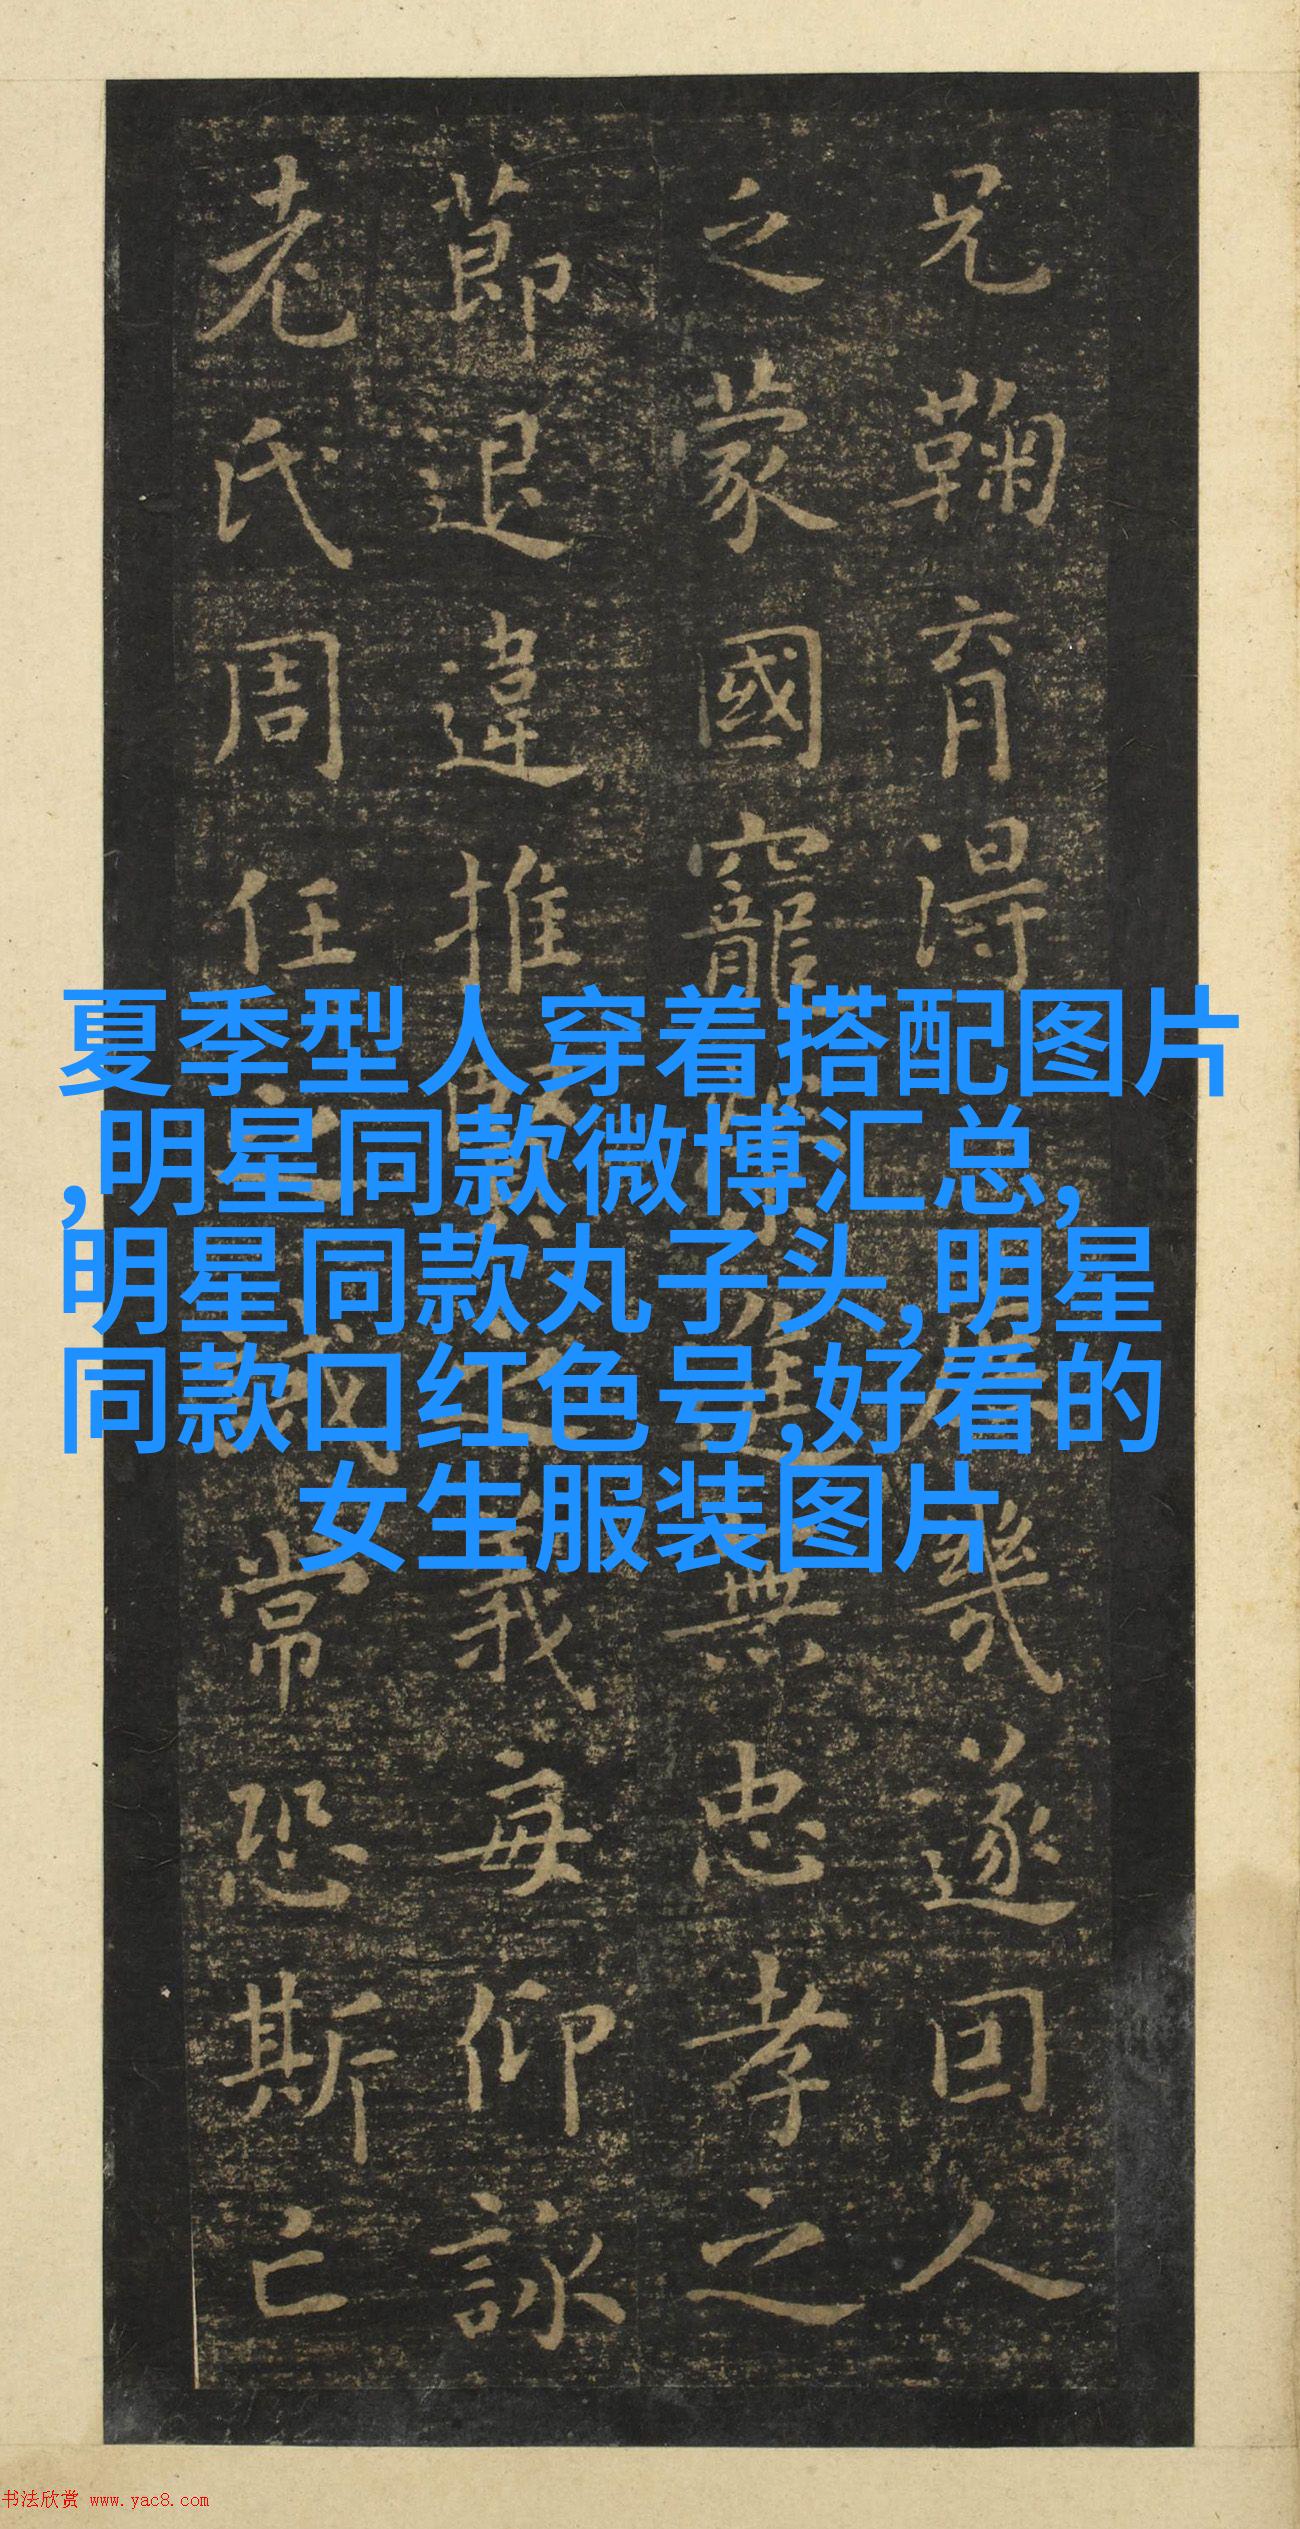 兄鞠育得庶幾遂囙人
之蒙國寵榮進無忠孝之
莭退違推賢之義每仰詠
老氏周任之誡常恐斯亡
夏季型人穿着搭配图片
,明星同款微博汇总,
明星同款丸子头,明星
同款口红色号,好看的
女生服装图片
书法欣赏 www.yac8.com